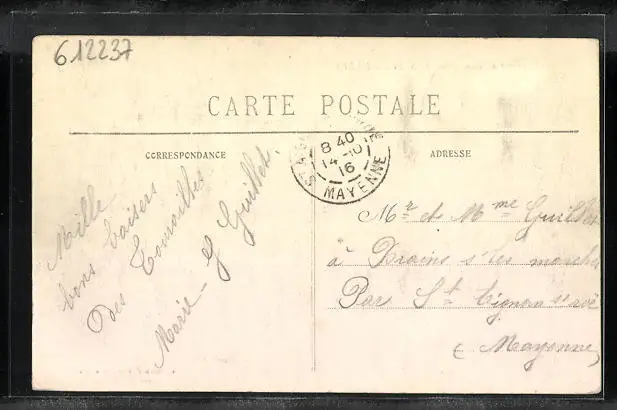 612237
CARTE POSTALE
CORRESPONDANCE
ADRESSE
8 40
14-10
16
MAYENNE
Mille
bons baisers
des Tourailles
Marie - G Guillet.
Mr et Mme Guillet
à Drains s'les marches
Par St
(Mayenne)